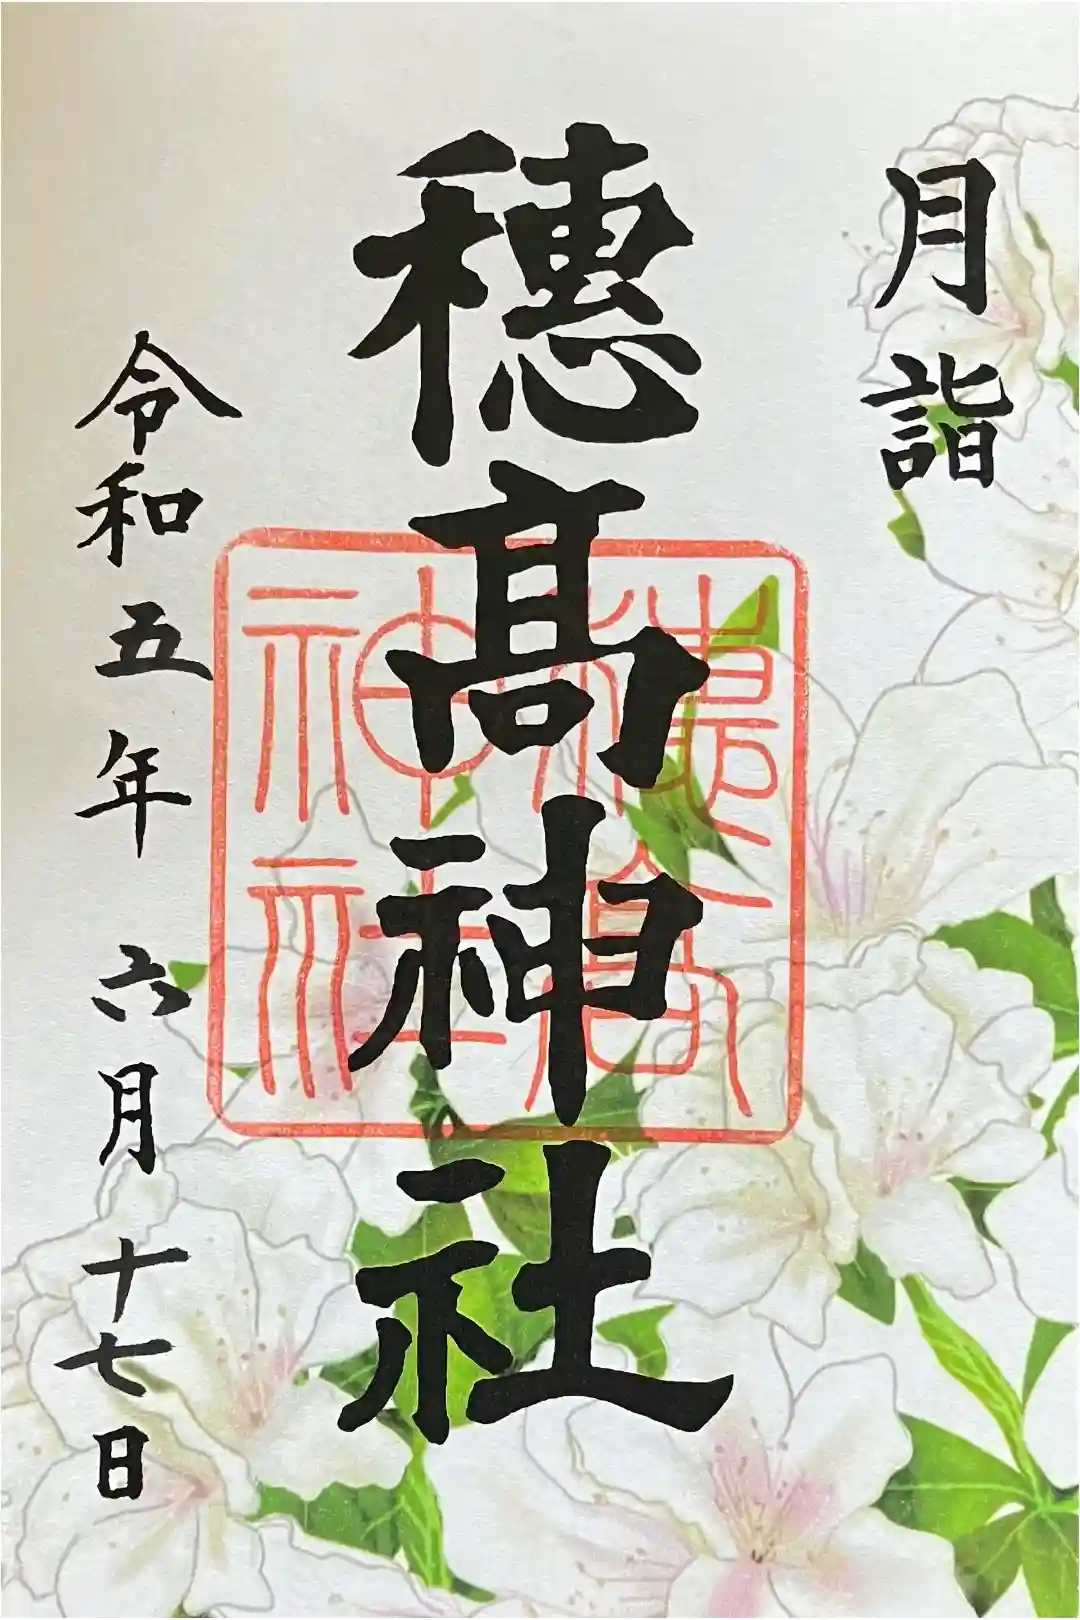 月詣
穂髙神社
穂高神社
令和五年六月十七日